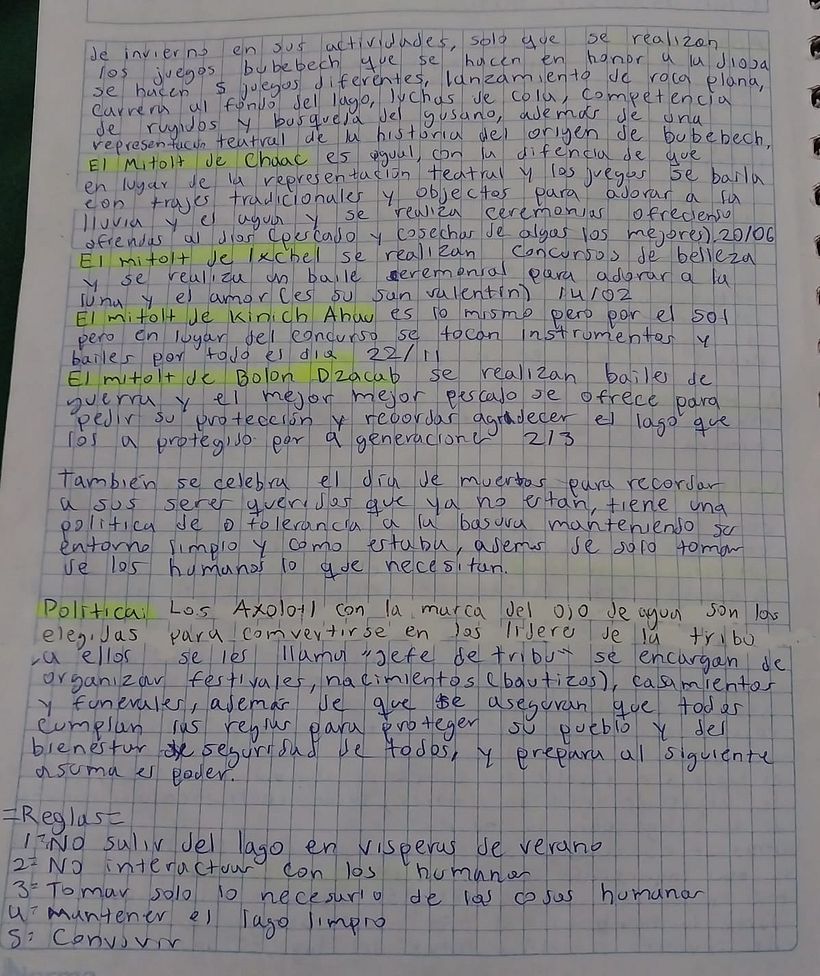 de invierno en sus actividades, solo que se realizan
los juegos bubebech que se hacen en honor a la diosa
se hacen 5 juegos diferentes, lanzamiento de roca plana,
carrera al fondo del lago, luchas de cola, competencia
de rugidos y busqueda del gusano, ademas de una
representacion teatral de la historia del origen de bubebech,
El Mitolt de Chaac es igual, con la difencia de que
en lugar de la representación teatral y los juegos se baila
con trajes tradicionales y objectos para adorar a la
lluvia y el agua y se realiza ceremonias ofrecienso
ofrendas al dios (pescado y cosechas de algas los mejores), 20/06
El mitolt de Ixchel se realizan concursos de belleza
y se realiza un baile ceremonial para adorar a la
luna y el amor (es su san valentin) 14/02
El mitolt de Kinich Ahau es lo mismo pero por el sol
pero en lugar del concurso se tocan instrumentos y
bailes por todo el dia 22/11
El mitolt de Bolon Dzacab se realizan bailes de
guerra y el mejor mejor pescado se ofrece para
pedir su protección y recordar agradecer el lago que
los a protegido por a generacione 2/3
También se celebra el día de muertos para recordar
a sus seres queridos que ya no estan, tiene una
politica de 0 tolerancia a la basura manteniendo su
entorno limpio y como estaba, adems de solo tomar
de los humanos lo que necesitan.
Politica: Los Axolotl con la marca del ojo de agua son los
elegidas para comvertirse en los lidere de la tribu
a ellos se les llama "Jefe de tribu" se encargan de
organizar festivales, nacimientos (bautizos), casamientos
y funerales, ademas de que se aseguran que todos
cumplan las reglas para proteger su pueblo y del
bienestar de seguridad de todos, y prepara al siguiente
asuma el poder.
=Reglas=
1= No salir del lago en visperas de verano
2= No interactuar con los humanos
3= Tomar solo lo necesario de las cosas humanas
4= mantener el lago limpio
5= Convivir